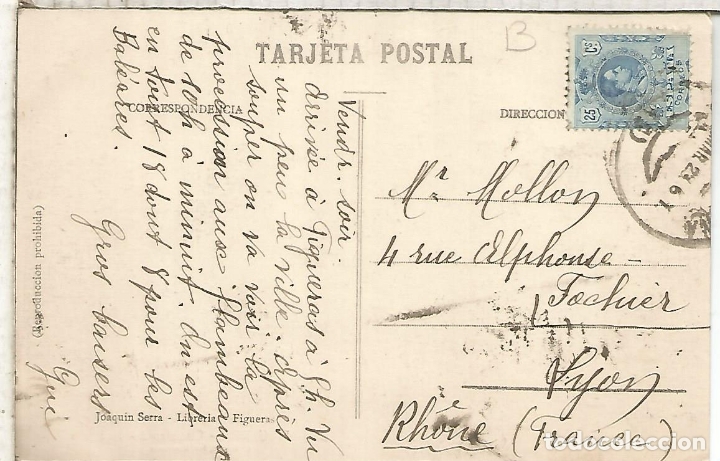 B
TARJETA POSTAL
CORRESPONDENCIA
DIRECCION
25 Cs
ESPAÑA
CORREOS
MAR 23 6
Vendr. soir.
Arrivé à Figueras à 5h. Vu
un peu la ville. Après
souper on va voir la
procession aux flambeaux
de 10h à minuit. On est
en tout 18 dont 8 pour les
Baléares.
Gros baisers
Gui
Mr Mollon
4 rue Alphonse-
Fochier
Lyon
Rhône (France)
(Reproduccion prohibida)
Joaquin Serra - Libreria - Figueras
todocoleccion.net